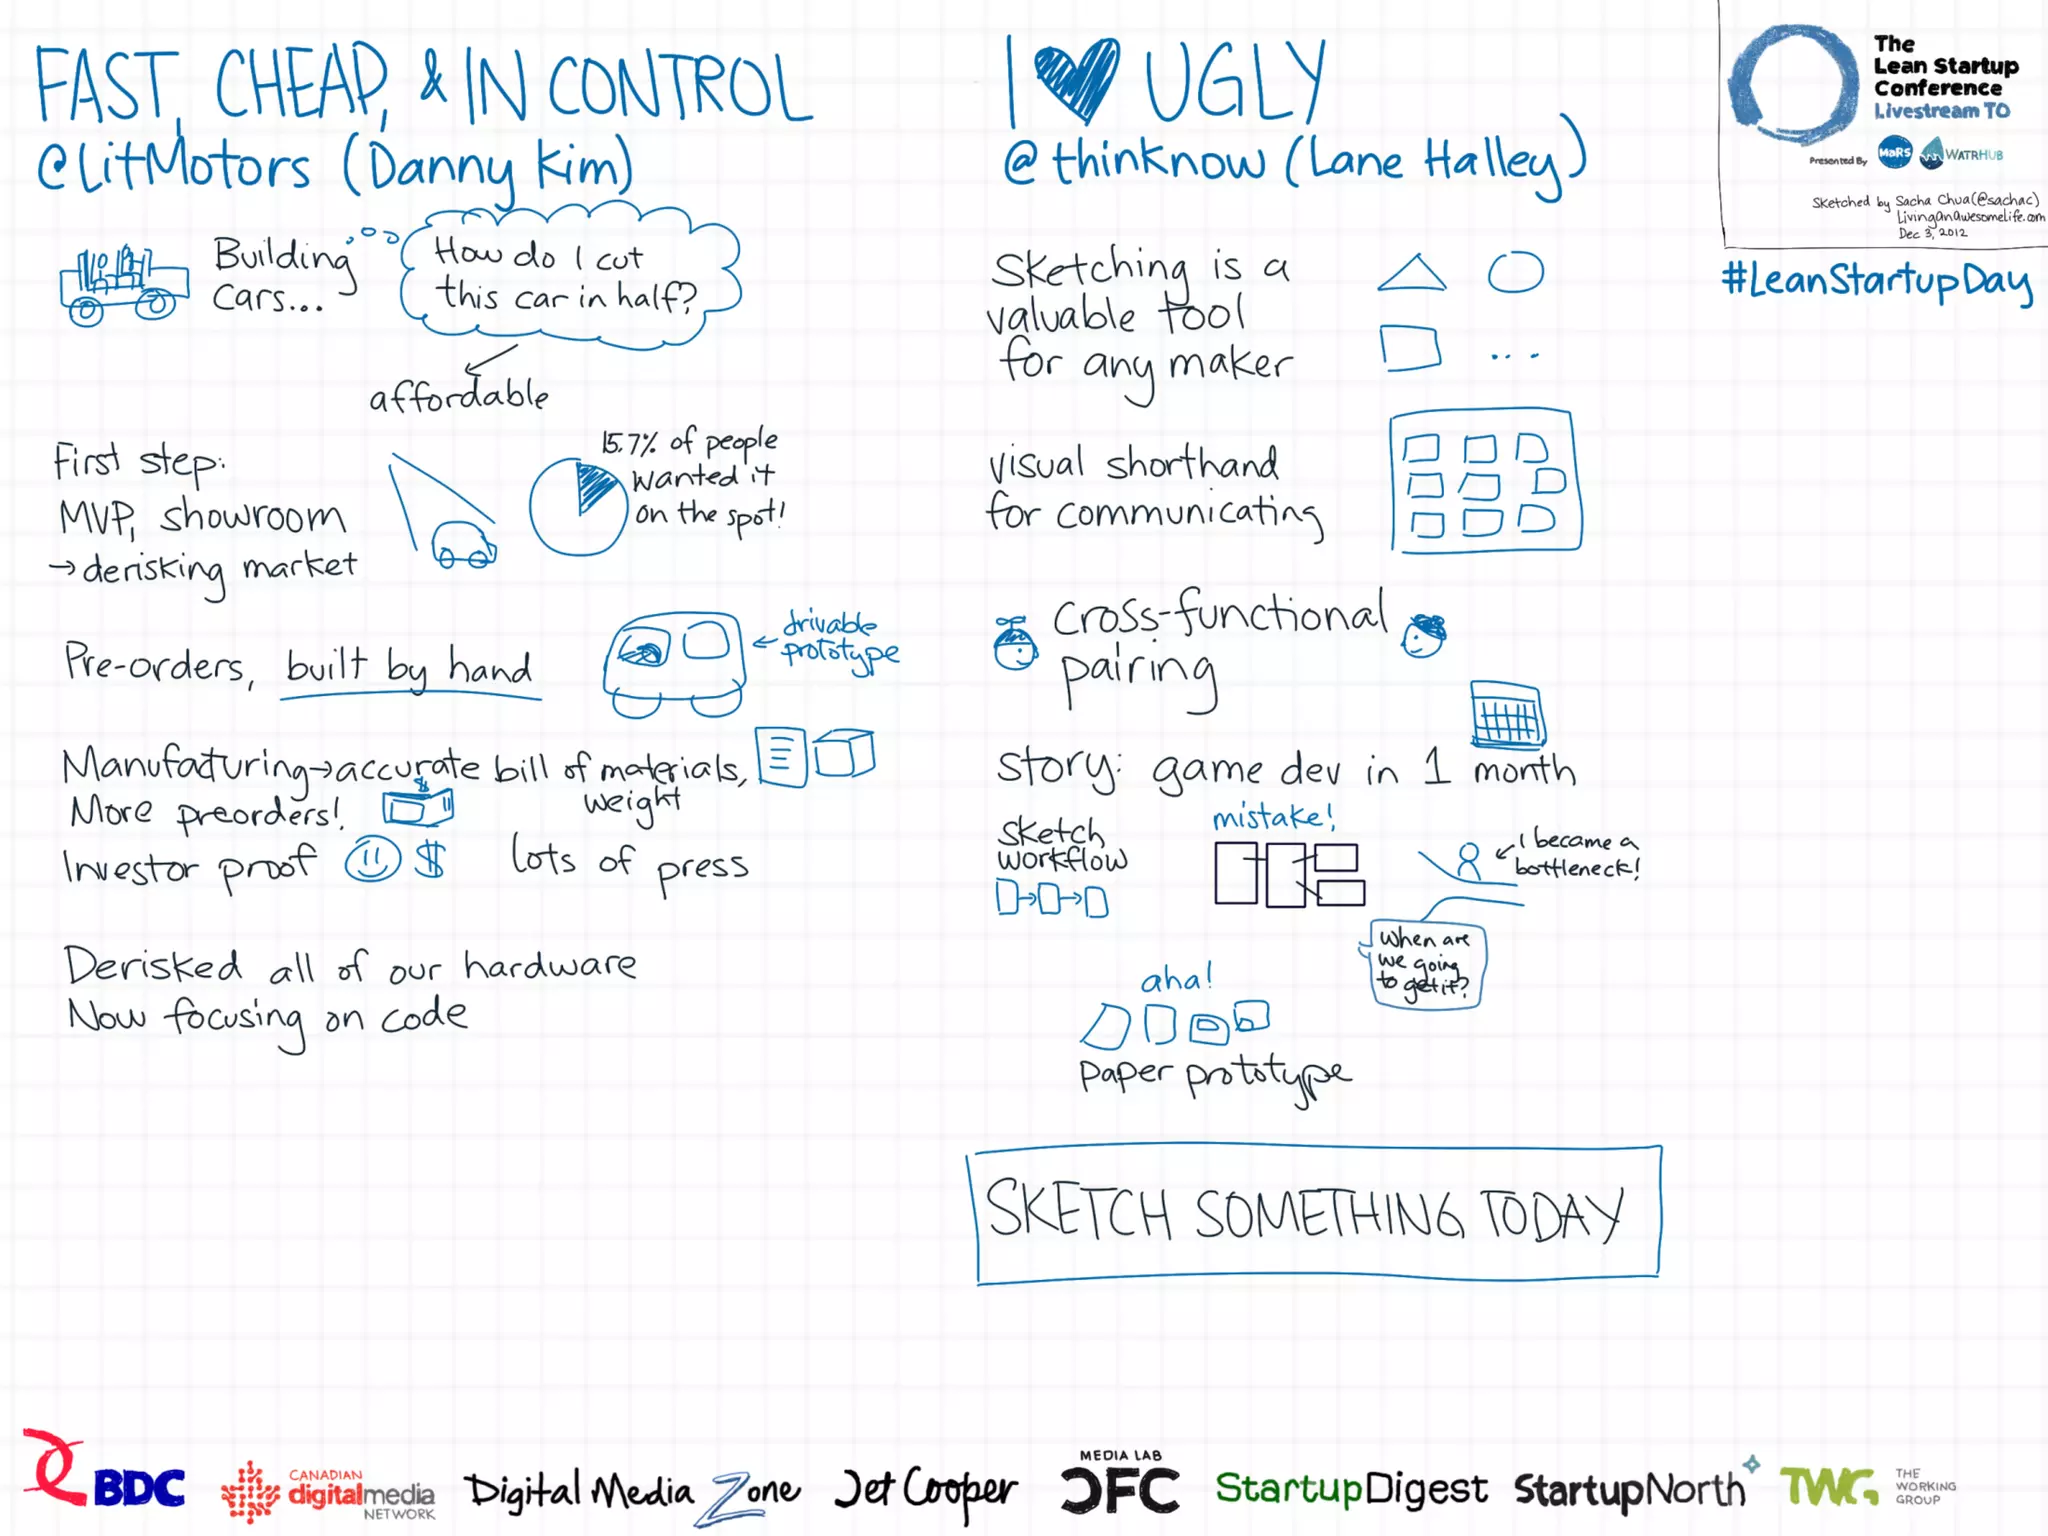 FAST, CHEAP, & IN CONTROL
@LitMotors (Danny Kim)
Building
cars...
How do I cut
this car in half?
affordable
First step:
MVP, showroom
→ derisking market
15.7% of people
wanted it
on the spot!
Pre-orders, built by hand
← drivable
prototype
Manufacturing → accurate bill of materials,
weight
More preorders!
$
Investor proof $ lots of press
Derisked all of our hardware
Now focusing on code
I ♥ UGLY
@thinknow (Lane Halley)
Sketching is a
valuable tool
for any maker
...
visual shorthand
for communicating
cross-functional
pairing
story: game dev in 1 month
sketch
workflow
mistake!
I became a
bottleneck!
When are
we going
to get it?
aha!
paper prototype
SKETCH SOMETHING TODAY
The
Lean Startup
Conference
Livestream TO
Presented By MaRS WATRHUB
Sketched by Sacha Chua (@sachac)
Livinganawesomelife.com
Dec 3, 2012
#LeanStartupDay
BDC
CANADIAN
digitalmedia
NETWORK
Digital Media Zone
Jet Cooper
MEDIA LAB
CFC
StartupDigest
StartupNorth
TWG
THE
WORKING
GROUP